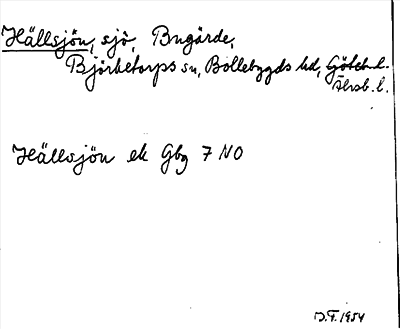 Hällsjön, sjö, Bugärde,
Björketorps sn, Bollebygds hd, Göteb. l.
Älvsb. l.
Hällsjön ek Gbg 7 NO
1954